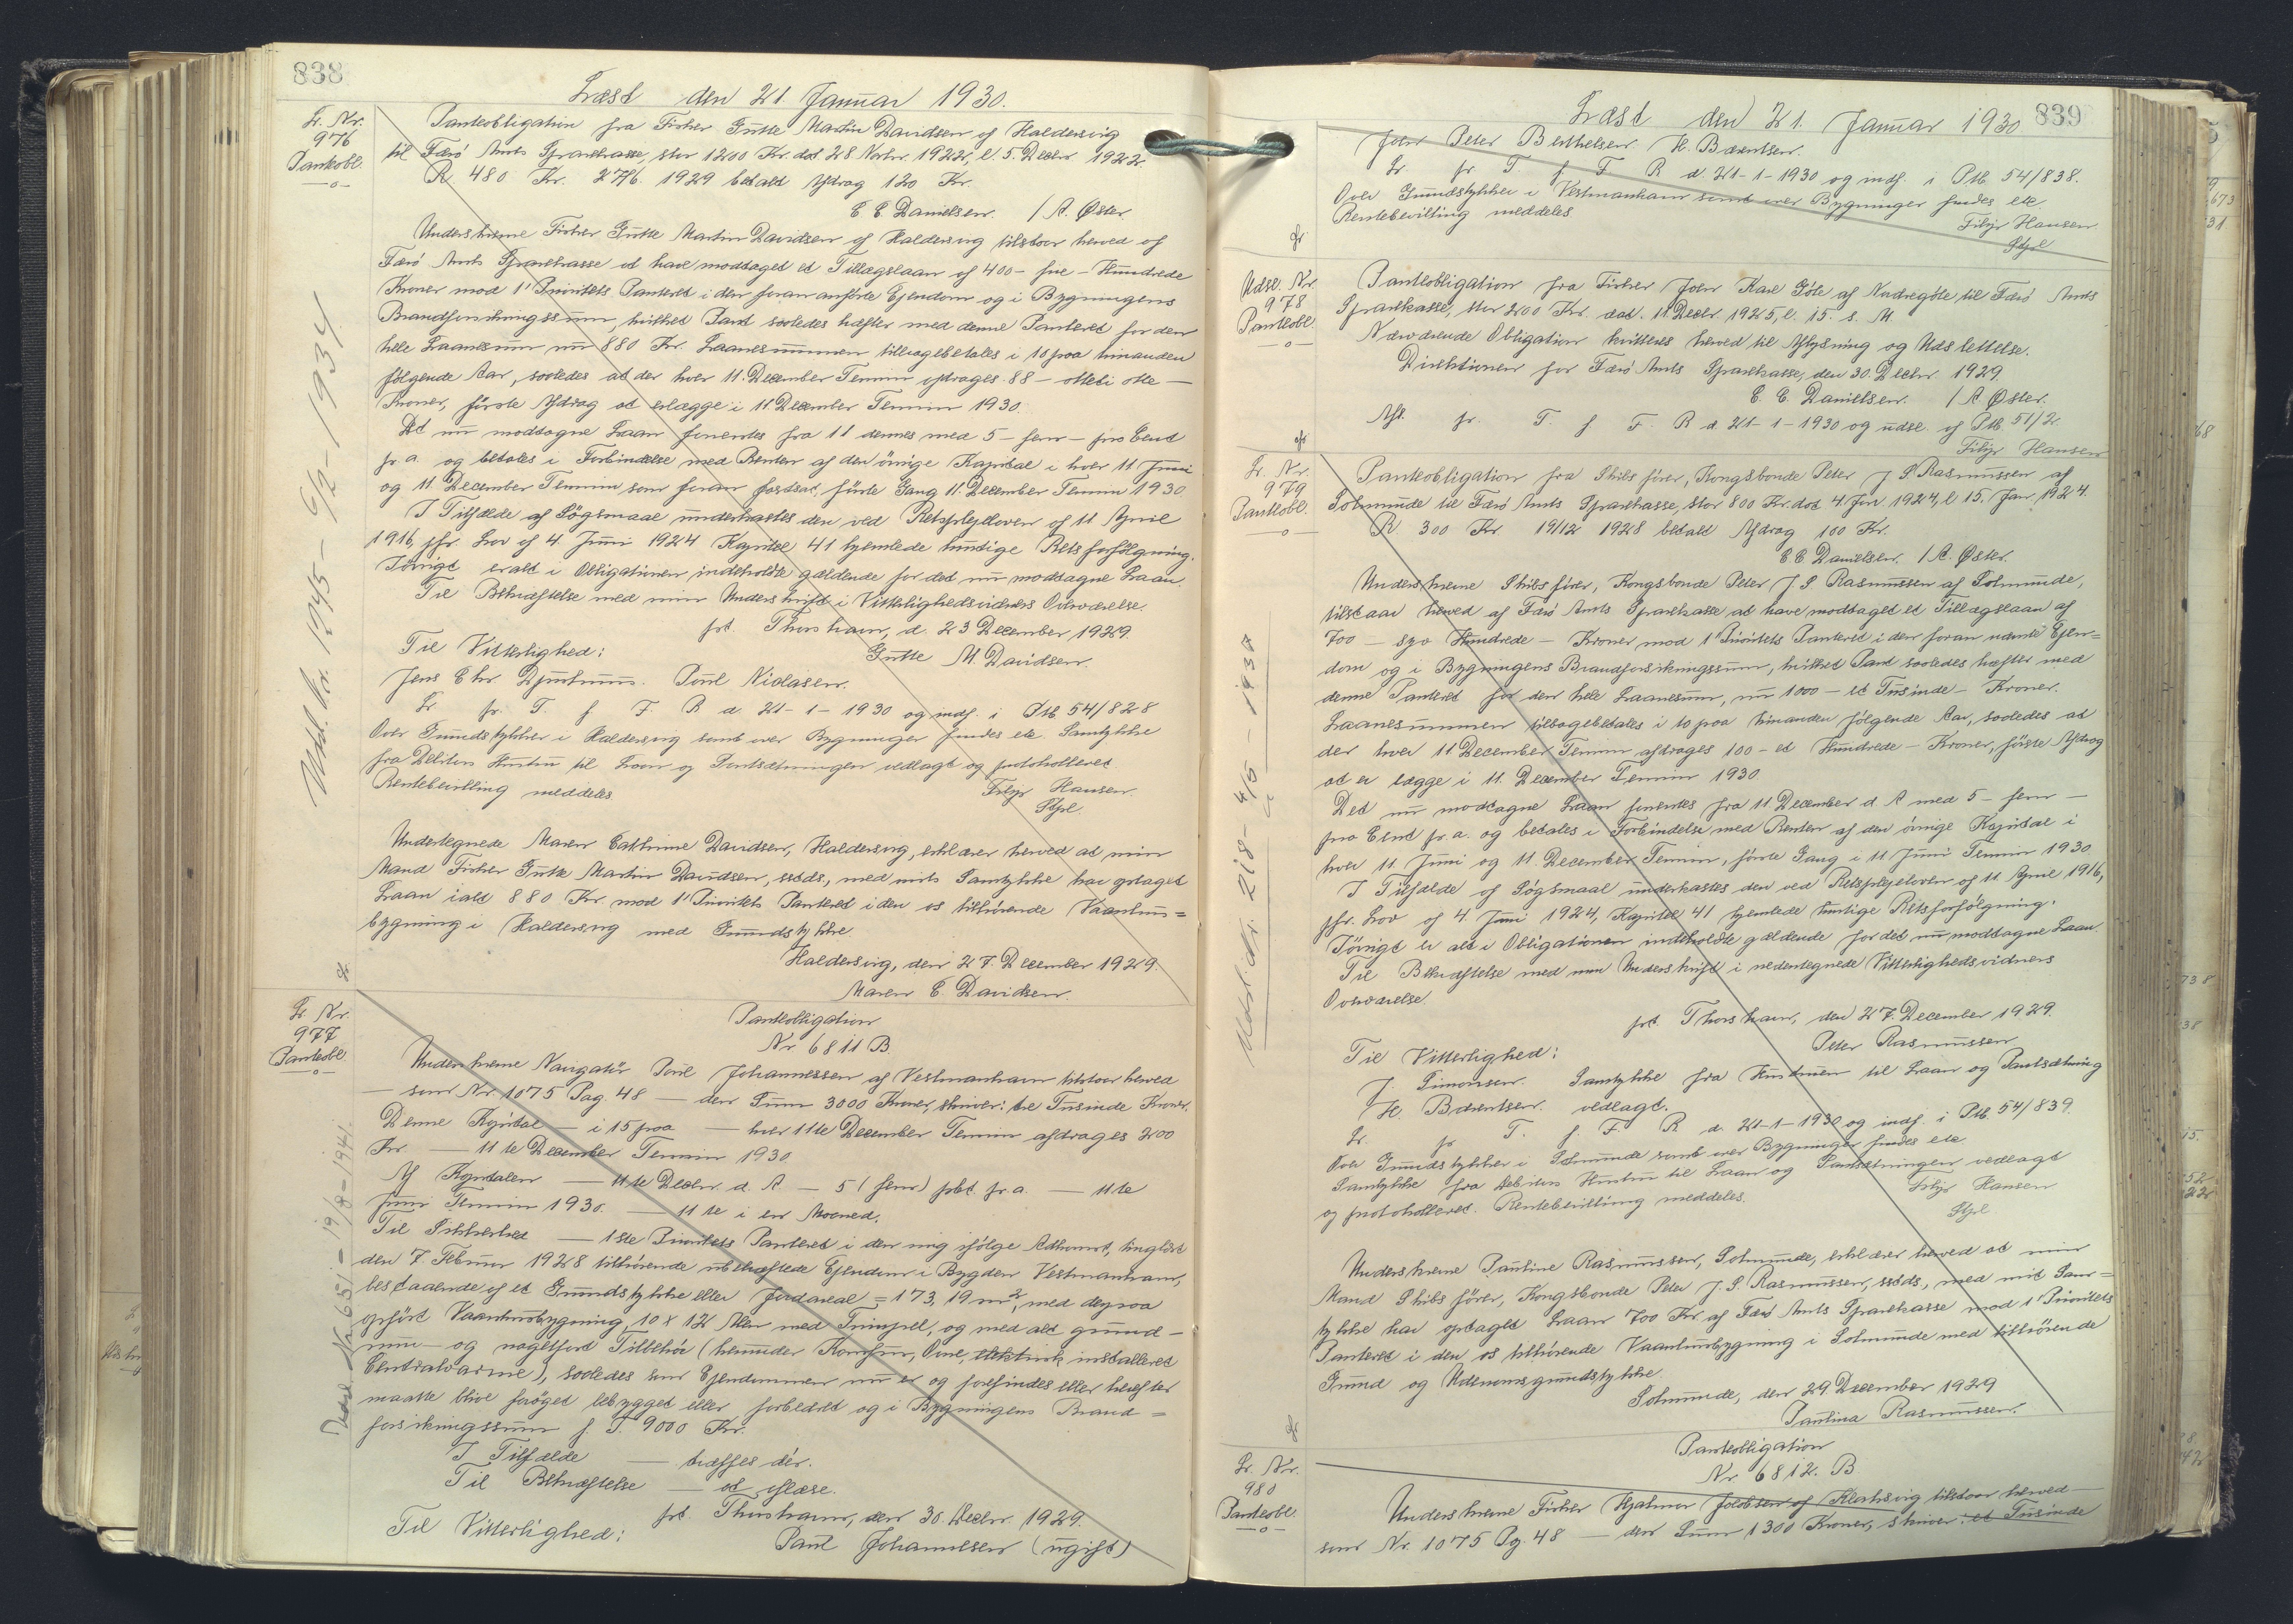 838
Læst den 21 Januar 1930.
Lr. Nr.
976
Panteobl.
Panteobligation fra Fisker Gutte Martin Davidsen af Haldersvig
til Færö Amts Sparekasse, stor 1200 Kr. dat 28 Novbr. 1922, l. 5. Decbr. 1922
R. 480 Kr. 27/6. 1929 betalt Afdrag 120 Kr.
E E Danielsen. / A. Øster.
Underskrevne Fisker Gutte Martin Davidsen af Haldersvig tilstaar herved af
Færö Amts Sparekasse at have modtaget et Tillægslaan af 400 - fire - Hundrede
Kroner mod 1' Prioritets Panteret i den foran anförte Ejendom og i Bygningens
Brandforsikringssum, hvilket Pant saaledes hæfter med denne Panteret for den
hele Laanesum nu 880 Kr. Laanesummen tilbagebetales i 10 paa hinanden
fölgende Aar, saaledes at der hver 11. December Termin afdrages 88 - otteti otte -
Kroner, förste Afdrag at erlægge i 11 December Termin 1930.
Det nu modtagne Laan forrentes fra 11 dennes med 5 - fem - pro Cent
pr a. og betales i Forbindelse med Renten af den övrige Kapital i hver 11 Juni
og 11. December Termin som foran fastsat, förste Gang 11. December Termin 1930
I Tilfælde af Sögsmaal underkastes den ved Retsplejeloven af 11 April
1916, jfr. Lov af 4. Juni 1924 Kapitel 41 hjemlede hurtige Retsforfölgning.
Iövrigt er alt i Obligationen indeholdte gældende for det nu modtagne Laan.
Til Bekræftelse med min Underskrift i Vitterlighedsvidners Overværelse.
pt. Thorshavn, d. 23 December 1929.
Til Vitterlighed:
Gutte M. Davidsen.
Jens Chr. Djurhuus. Poul Niclasen.
Lr. pr. T. f F. R d 21 - 1 - 1930 og indf. i Ptb 54/828
Over Grundstykker i Haldersvig samt over Bygninger findes ete. Samtykke
fra Debitors Hustru til Laan og Pantsætningen vedlagt og protokolleret.
Rentebevilling meddeles.
Filip Hansen.
Stpl.
Udsl. Nr. 1945 - 6/2 - 1934.
Undertegnede Maren Cathrine Davidsen, Haldersvig, erklærer herved at min
Mand Fisker Gutte Martin Davidsen, ssteds., med mit Samtykke har optaget
Laan ialt 880 Kr. mod 1' Prioritets Panteret i den os tilhörende Vaanhus=
bygning i Haldersvig med Grundstykke
Haldersvig, den 27. December 1929.
Maren C. Davidsen.
Lr. Nr.
977
Panteobl.
Panteobligation
Nr 6811 B.
Underskrevne Navigatör Poul Johannessen af Vestmanhavn tilstaar herved
- som Nr. 1075 Pag. 48 - den Sum 3000 Kroner, skriver: tre Tusinde Kroner.
Denne Kapital - i 15 paa - hver 11te December Termin afdrages 200
Kr. - 11te December Termin 1930
Af Kapitalen - 11te Decbr. d. A. - 5 (fem) pct. pr. a. - 11te
Juni Termin 1930. - 11 te i en Maaned.
Til Sikkerhed - 1ste Prioritets Panteret i den mig ifölge Adkomst, tinglæst
den 7. Februar 1928 tilhörende ubehæftede Ejendom i Bygden Vestmanhavn,
bestaaende af et Grundstykke eller Jordareal = 173,19 m², med derpaa
opfört Vaanhusbygning, 10 x 12 Alen med Tvinpell, og med alt grund-
mur- og nagelfast Tilbehör (herunder Komfur, Ovne, elektrisk installeret
Centralvarme), saaledes som Ejendommen nu er og forefindes eller herefter
maatte blive foröget bebygget eller forbedret og i Bygningens Brand=
forsikringssum f. T. 9000 Kr.
I Tilfælde - træffes dér.
Til Bekræftelse - at oplæse.
pt. Thorshavn, den 30. Decbr. 1929.
Til Vitterlighed:
Paul Johannesen (ugift)
Udsl. Nr. 631 - 19/8 - 1941.
839
Læst den 21. Januar 1930
John Peter Berthelsen H. Bærentsen.
Lr. pr T. f. F. R d. 21 - 1 - 1930 og indf. i Ptb. 54/838.
Over Grundstykker i Vestmanhavn samt over Bygninger findes ete.
Rentebevilling meddeles
Filip Hansen
Stpl
Udsl. Nr
978
Panteobl.
Panteobligation fra Fisker John Karl Göte af Nordregöte til Færö Amts
Sparekasse, stor 200 Kr. dat. 11. Decbr. 1925, l. 15. s. M.
Nærværende Obligation kvitteres herved til Aflysning og Udslettelse.
Direktionen for Færö Amts Sparekasse, den 30. Decbr. 1929.
E. E. Danielsen. / A Øster.
Afl. pr. T. f F. R d. 21 - 1 - 1930 og udsl. af Ptb. 51/2.
Filip Hansen
Lr. Nr.
979
Panteobl.
Panteobligation fra Skibsförer, Kongsbonde Peter J. S. Rasmussen af
Solmunde til Færö Amts Sparekasse, stor 800 Kr. dat 4. Jan 1924, l 15. Jan 1924.
R 300 Kr 19/12 1928 betalt Afdrag 100 Kr.
E. E. Danielsen. / A. Øster.
Underskrevne Skibsförer, Kongsbonde Peter J. S. Rasmussen af Solmunde,
tilstaar herved af Færö Amts Sparekasse at have modtaget et Tillægslaan af
700 - syv Hundrede - Kroner mod 1' Prioritets Panteret i den foran nævnte Ejen=
dom og i Bygningens Brandforsikringssum, hvilket Pant saaledes hæfter med
denne Panteret for den hele Laanesum, nu 1000 - et Tusinde - Kroner.
Laanesummen tilbagebetales i 10 paa hinanden fölgende Aar, saaledes at
der hver 11. December Termin afdrages 100 - et Hundrede - Kroner, förste Afdrag
at er lægge i 11. December Termin 1930
Det nu modtagne Laan forrentes fra 11 December d. A med 5 - fem -
pro Cent pr. a. og betales i Forbindelse med Renten af den övrige Kapital i
hver 11 Juni og 11. December Termin, förste Gang i 11 Juni Termin 1930
I Tilfælde af Sögsmaal underkastes den ved Retsplejeloven af 11. April 1916,
jfr. Lov af 4. Juni 1924, Kapitel 41 hjemlede hurtige Retsforfölgning.
Iövrigt er alt i Obligationen indeholdte gældende for det nu modtagne Laan.
Til Bekræftelse med min Underskrift i nedentegnede Vitterlighedsvidners
Overværelse.
pt. Thorshavn, den 27. December 1929.
Til Vitterlighed:
Peter Rasmussen
J. Simonsen. Samtykke fra Hustruen til Laan og Pantsætning
H Bærentsen. vedlagt.
Lr. pr T. f. F. R d. 21 - 1 - 1930 og indf. i Ptb 54/839.
Over Grundstykker i Solmunde samt over Bygninger findes ete
Samtykke fra Debitors Hustru til Laan og Pantsætningen vedlagt
og protokolleret. Rentebevilling meddeles.
Filip Hansen
Stpl
Udsl. 218 - 4/5 - 1937
Underskrevne Pauline Rasmussen, Solmunde, erklærer herved at min
Mand Skibsförer, Kongsbonde Peter J. S. Rasmussen, ssteds., med mit Sam=
tykke har optaget Laan 700 Kr. af Færö Amts Sparekasse mod 1' Prioritets
Panteret i den os tilhörende Vaanhusbygning i Solmunde med tilhörende
Grund og Udenomsgrundstykke.
Solmunde, den 29 December 1929
Paulina Rasmussen.
Lr. Nr.
980
Panteobl.
Panteobligation
Nr 6812. B
Underskrevne Fisker Hjalmar Jacobsen af Klaksvig tilstaar herved -
som Nr. 1075 Pg. 48 - den Sum 1300 Kroner, skriver: et Tusinde